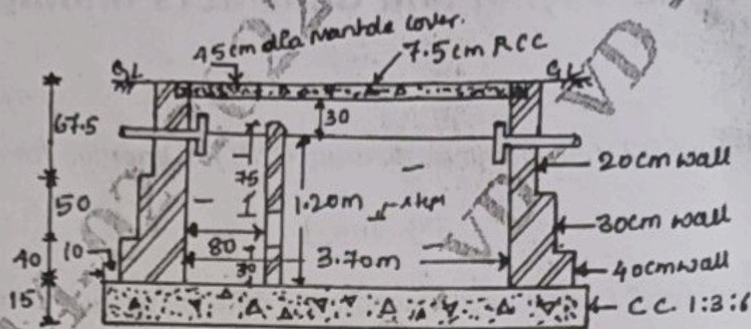 45cm dia manhole cover.
7.5cm RCC
GL
GL
67.5
30
75
20cm wall
50
1.20m
30cm wall
80
3.70m
40
10
30
40cm wall
15
C.C. 1:3:6
VD
VD